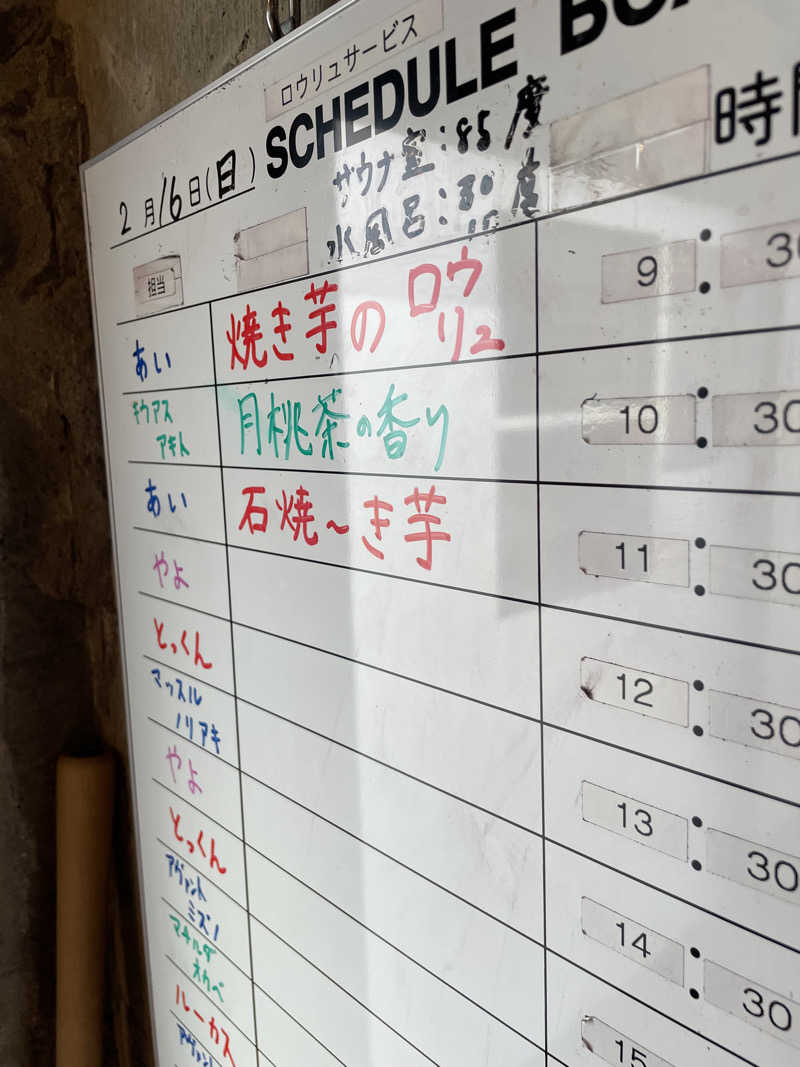 ロウリュサービス
SCHEDULE BOA
2月16日(日)
サウナ室:85度
水風呂:
時間
担当
あい 焼き芋のロウリュ 9:30
キウアスアキト 月桃茶の香り 10:30
あい 石焼〜き芋 11:30
やよ 12:30
とっくん 13:30
マッスルノリアキ 14:30
やよ 15
とっくん
アヴァントミズノ
マチルダオカベ
ルーカス
アヴァント